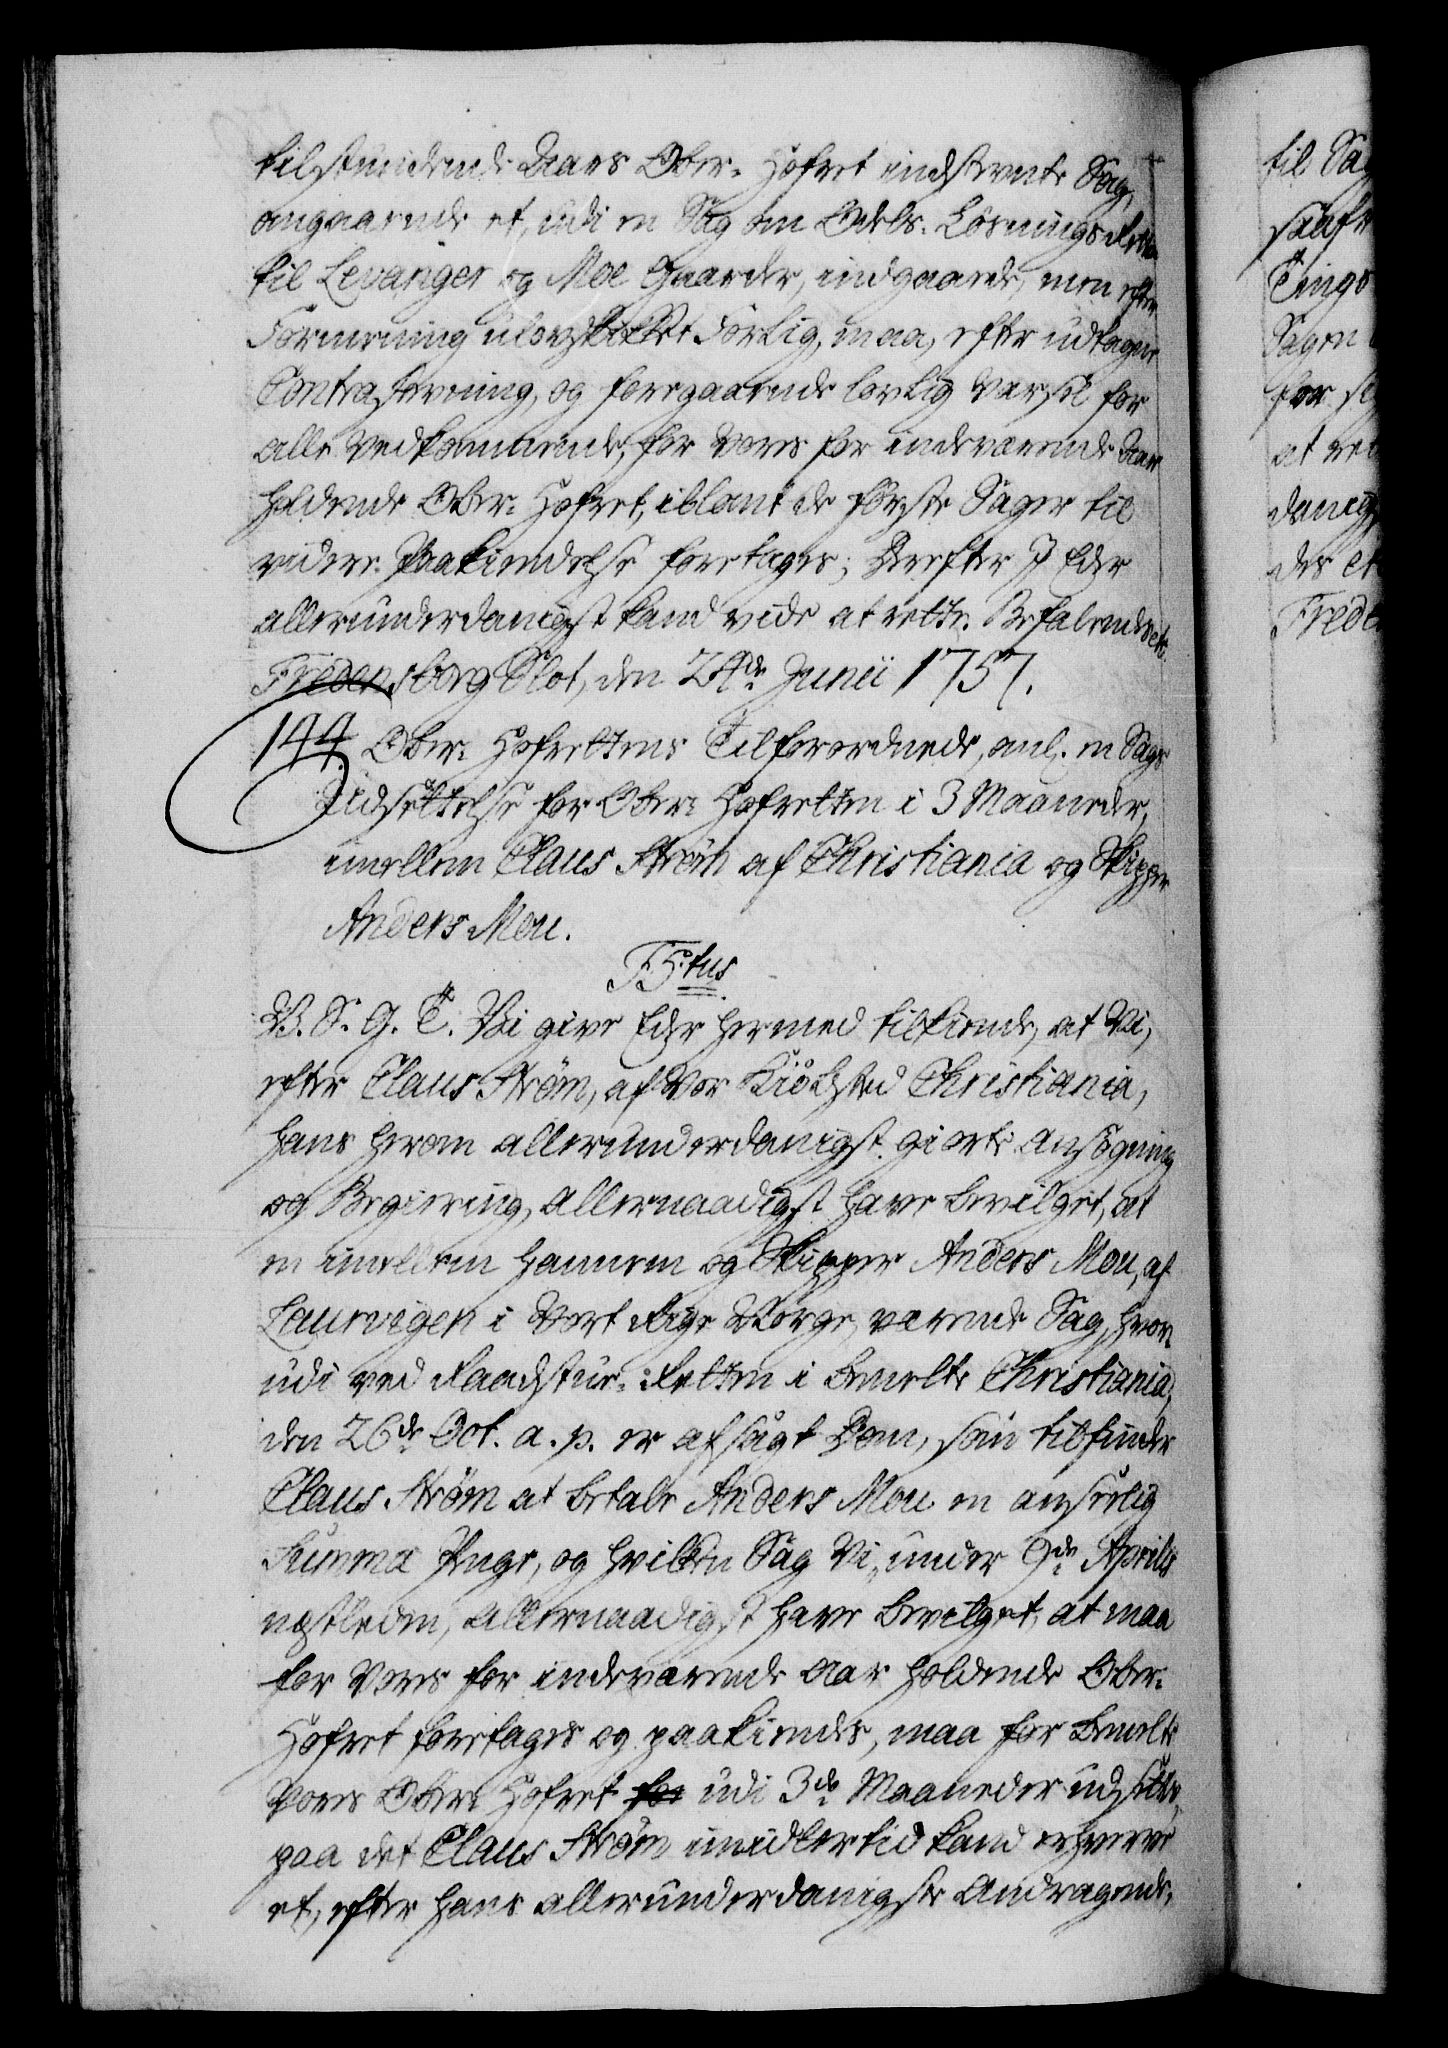 tilstundende Aars Ober-Hofret indstevnte Sag,
angaaende et, udi en Sag om Odels-Løsnings Retten
til Levanger og Moe Gaarder, indgaaede, men efter
Formeening ulovskikket Forlig, maa, efter udtagen
Contrastevning, og foregaaende lovlig Varsel for
alle Vedkommende, for Vores for indeværende Aar
holdende Ober-Hofret, iblant de første Sager til
videre Paakiendelse foretages; Derefter I Eder
allerunderdanigst kand vide at rette. Befalendes etc.
Fredensborg Slot, den 24de Junii 1757.
144. Ober-Hofrettens Tilforordnede, anl. en Sags
Udsættelse for Ober-Hofretten i 3 Maaneder,
imellem Claus Strøm af Christiania og Skipper
Anders Mou.
F5tus
V. S. G. T. Vi give Eder hermed tilkiende, at Vi,
efter Claus Strøm, af Vor Kiøbsted Christiania,
hans herom allerunderdanigst giorte Ansøgning
og Begiering, allernaadigst have bevilget, at
en imellem hannem og Skipper Anders Mou, af
Laurvigen i Vort Rige Norge, værende Sag, hvor-
udi ved Raadstue-Retten i bemelte Christiania,
den 26de Oct. a. p. er afsagt Dom, som tilfinder
Claus Strøm at betale Anders Mou en anseelig
Summa Penge, og hvilken Sag Vi, under 9de Aprilis
næstleden, allernaadigst have bevilget, at maa
for Vores for indeværende Aar holdende Ober-
Hofret foretages og paakiendes, maa for bemelte
Vores Ober-Hofret for udi 3de Maaneder udsættes,
paa det Claus Strøm imidlertid kand erhverve
et, efter hans allerunderdanigste Andragende,